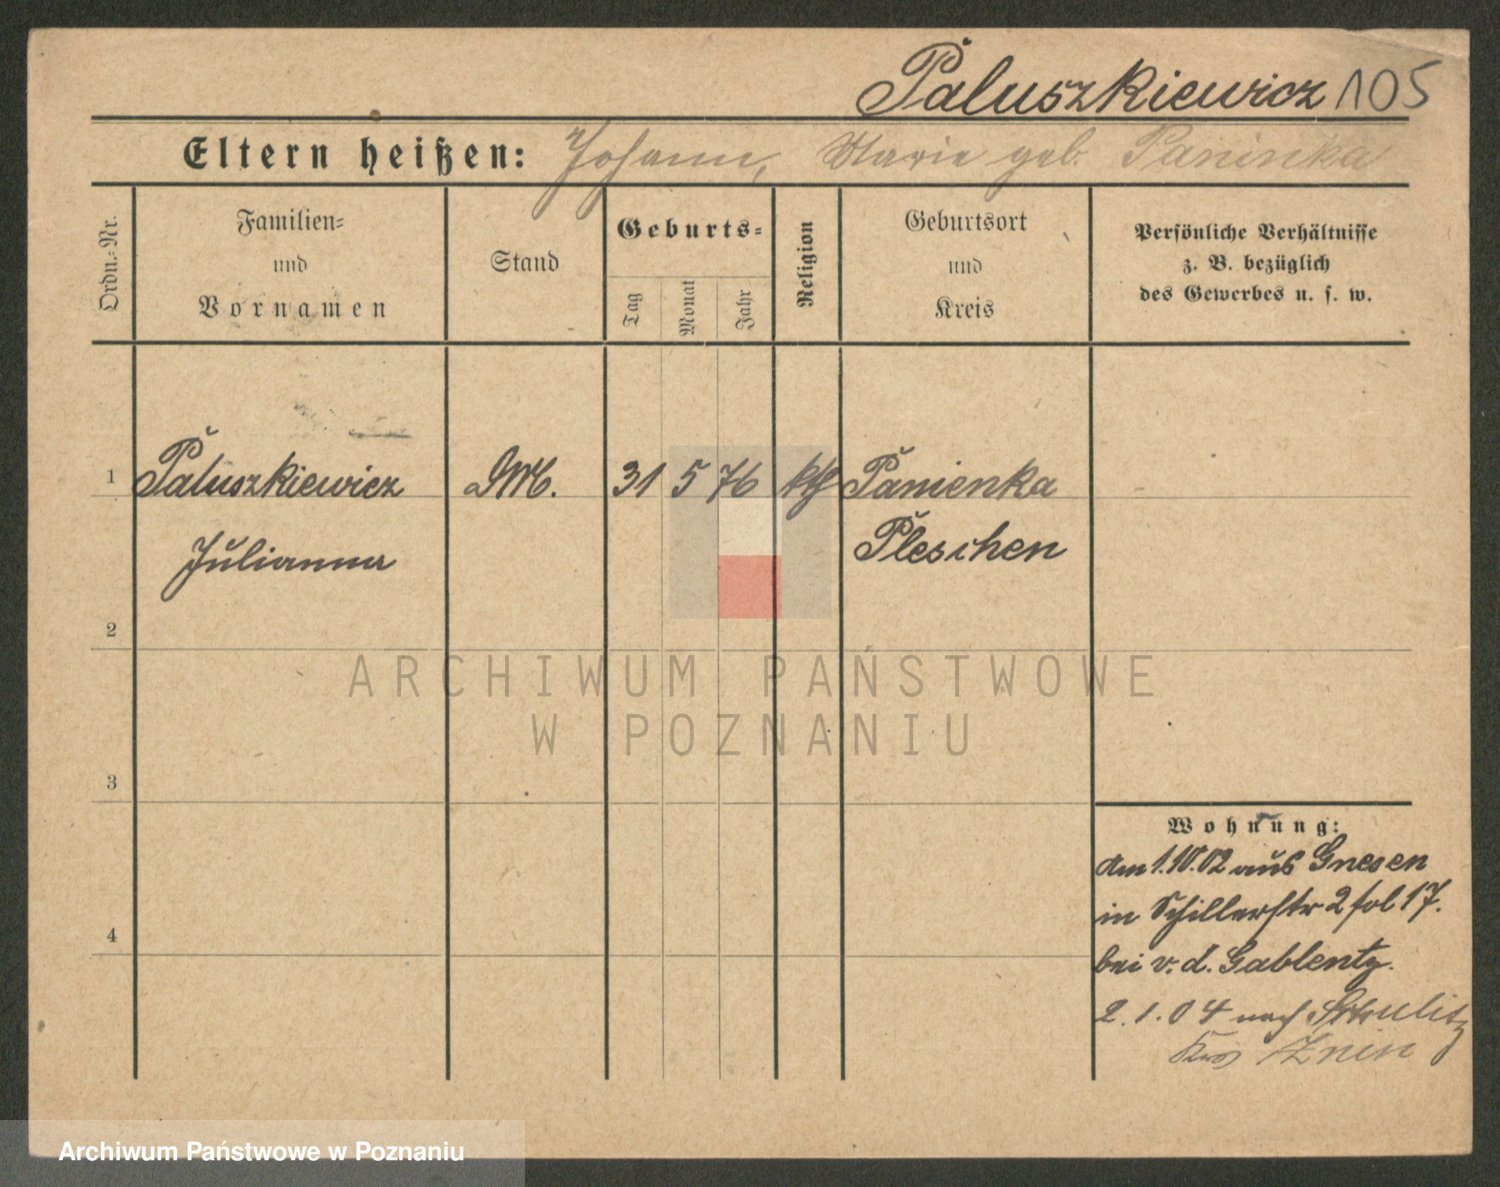 Paluszkiewicz 105
Eltern heißen: Johann, Marie geb. Paninka
Ordn.-Nr.
Familien-
und
Vornamen
Stand
Geburts-
Tag
Monat
Jahr
Religion
Geburtsort
und
Kreis
Persönliche Verhältnisse
z. B. bezüglich
des Gewerbes u. s. w.
1 Paluszkiewicz 31 5 76 kth Panienka
Julianna Pleschen
2
3
4
ARCHIWUM PAŃSTWOWE
W POZNANIU
Wohnung:
am 1.10.02 aus Gnesen
in Schillerstr 2 fol 17.
bei v. d. Gablentz.
2.1.04 nach
Znin
Archiwum Państwowe w Poznaniu